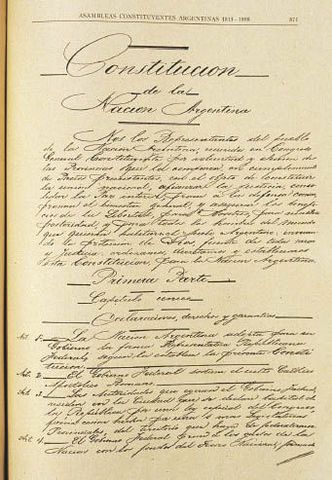 ASAMBLEAS CONSTITUYENTES ARGENTINAS 1813-1898 871
Constitucion
de la
Nacion Argentina
Nos los Representantes del pueblo
de la Nacion Argentina, reunidos en Congreso
General Constituyente por voluntad y eleccion de
las Provincias que la componen, en cumplimiento
de Pactos preexistentes, con el objeto de constituir
la union nacional, afianzar la justicia, conso-
lidar la paz interior, proveer a la defensa comun
promover el bienestar general, y asegurar los benefi-
cios de la Libertad, para Nosotros, para nuestra
posteridad, y para todos los hombres del mundo
que quieran habitar en el suelo Argentino, invocan-
do la proteccion de Dios, fuente de toda razon
y Justicia, ordenamos, decretamos y establecemos
esta Constitucion, para la Nacion Argentina.
Primera Parte
Capitulo unico
Declaraciones, derechos y garantias
Art. 1 La Nacion Argentina adopta para su
Gobierno la forma Representativa Republicana
Federal, segun la establece la presente Consti
tucion
Art. 2 El Gobierno Federal sostiene el culto Catolico
Apostolico Romano.
Art. 3 Las Autoridades que ejercen el Gobierno Federal,
residen en la Ciudad que se declare Capital de
la Republica por una ley especial del Congreso,
previa cesion hecha por una o mas Legislaturas
Provinciales, del territorio que haya de federalizarse
Art. 4 El Gobierno Federal provee a los gastos de la
Nacion con los fondos del Tesoro Nacional, formado